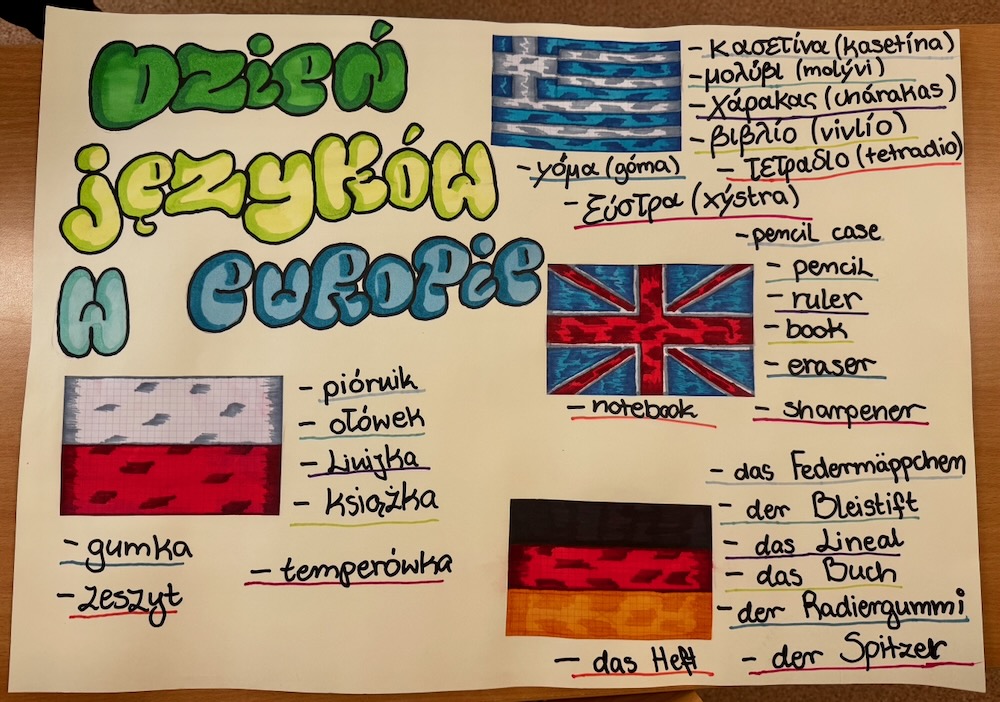 Dzień
języków
w europie
- κασετίνα (kasetína)
- μολύβι (molývi)
- χάρακας (chárakas)
- βιβλίο (vivlío)
- τετραδιο (tetradio)
- γόμα (góma)
- ξύστρα (xýstra)
- pencil case
- pencil
- ruler
- book
- eraser
- notebook
- sharpener
- piórnik
- ołówek
- Linijka
- książka
- gumka
- temperówka
- zeszyt
- das Federmäppchem
- der Bleistift
- das Lineal
- das Buch
- der Radiergummi
- das Heft
- der Spitzer